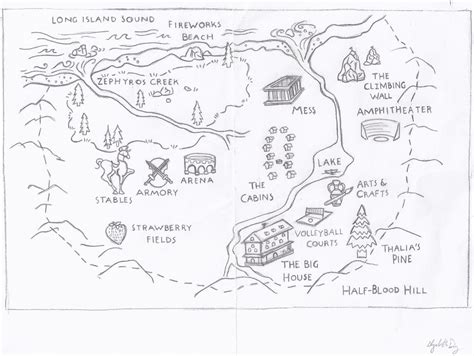 LONG ISLAND SOUND
FIREWORKS
BEACH
ZEPHYROS CREEK
THE
CLIMBING
WALL
MESS
AMPHITHEATER
LAKE
ARENA
ARMORY
STABLES
THE
CABINS
ARTS &
CRAFTS
STRAWBERRY
FIELDS
VOLLEYBALL
COURTS
THALIA'S
PINE
THE BIG
HOUSE
HALF-BLOOD HILL